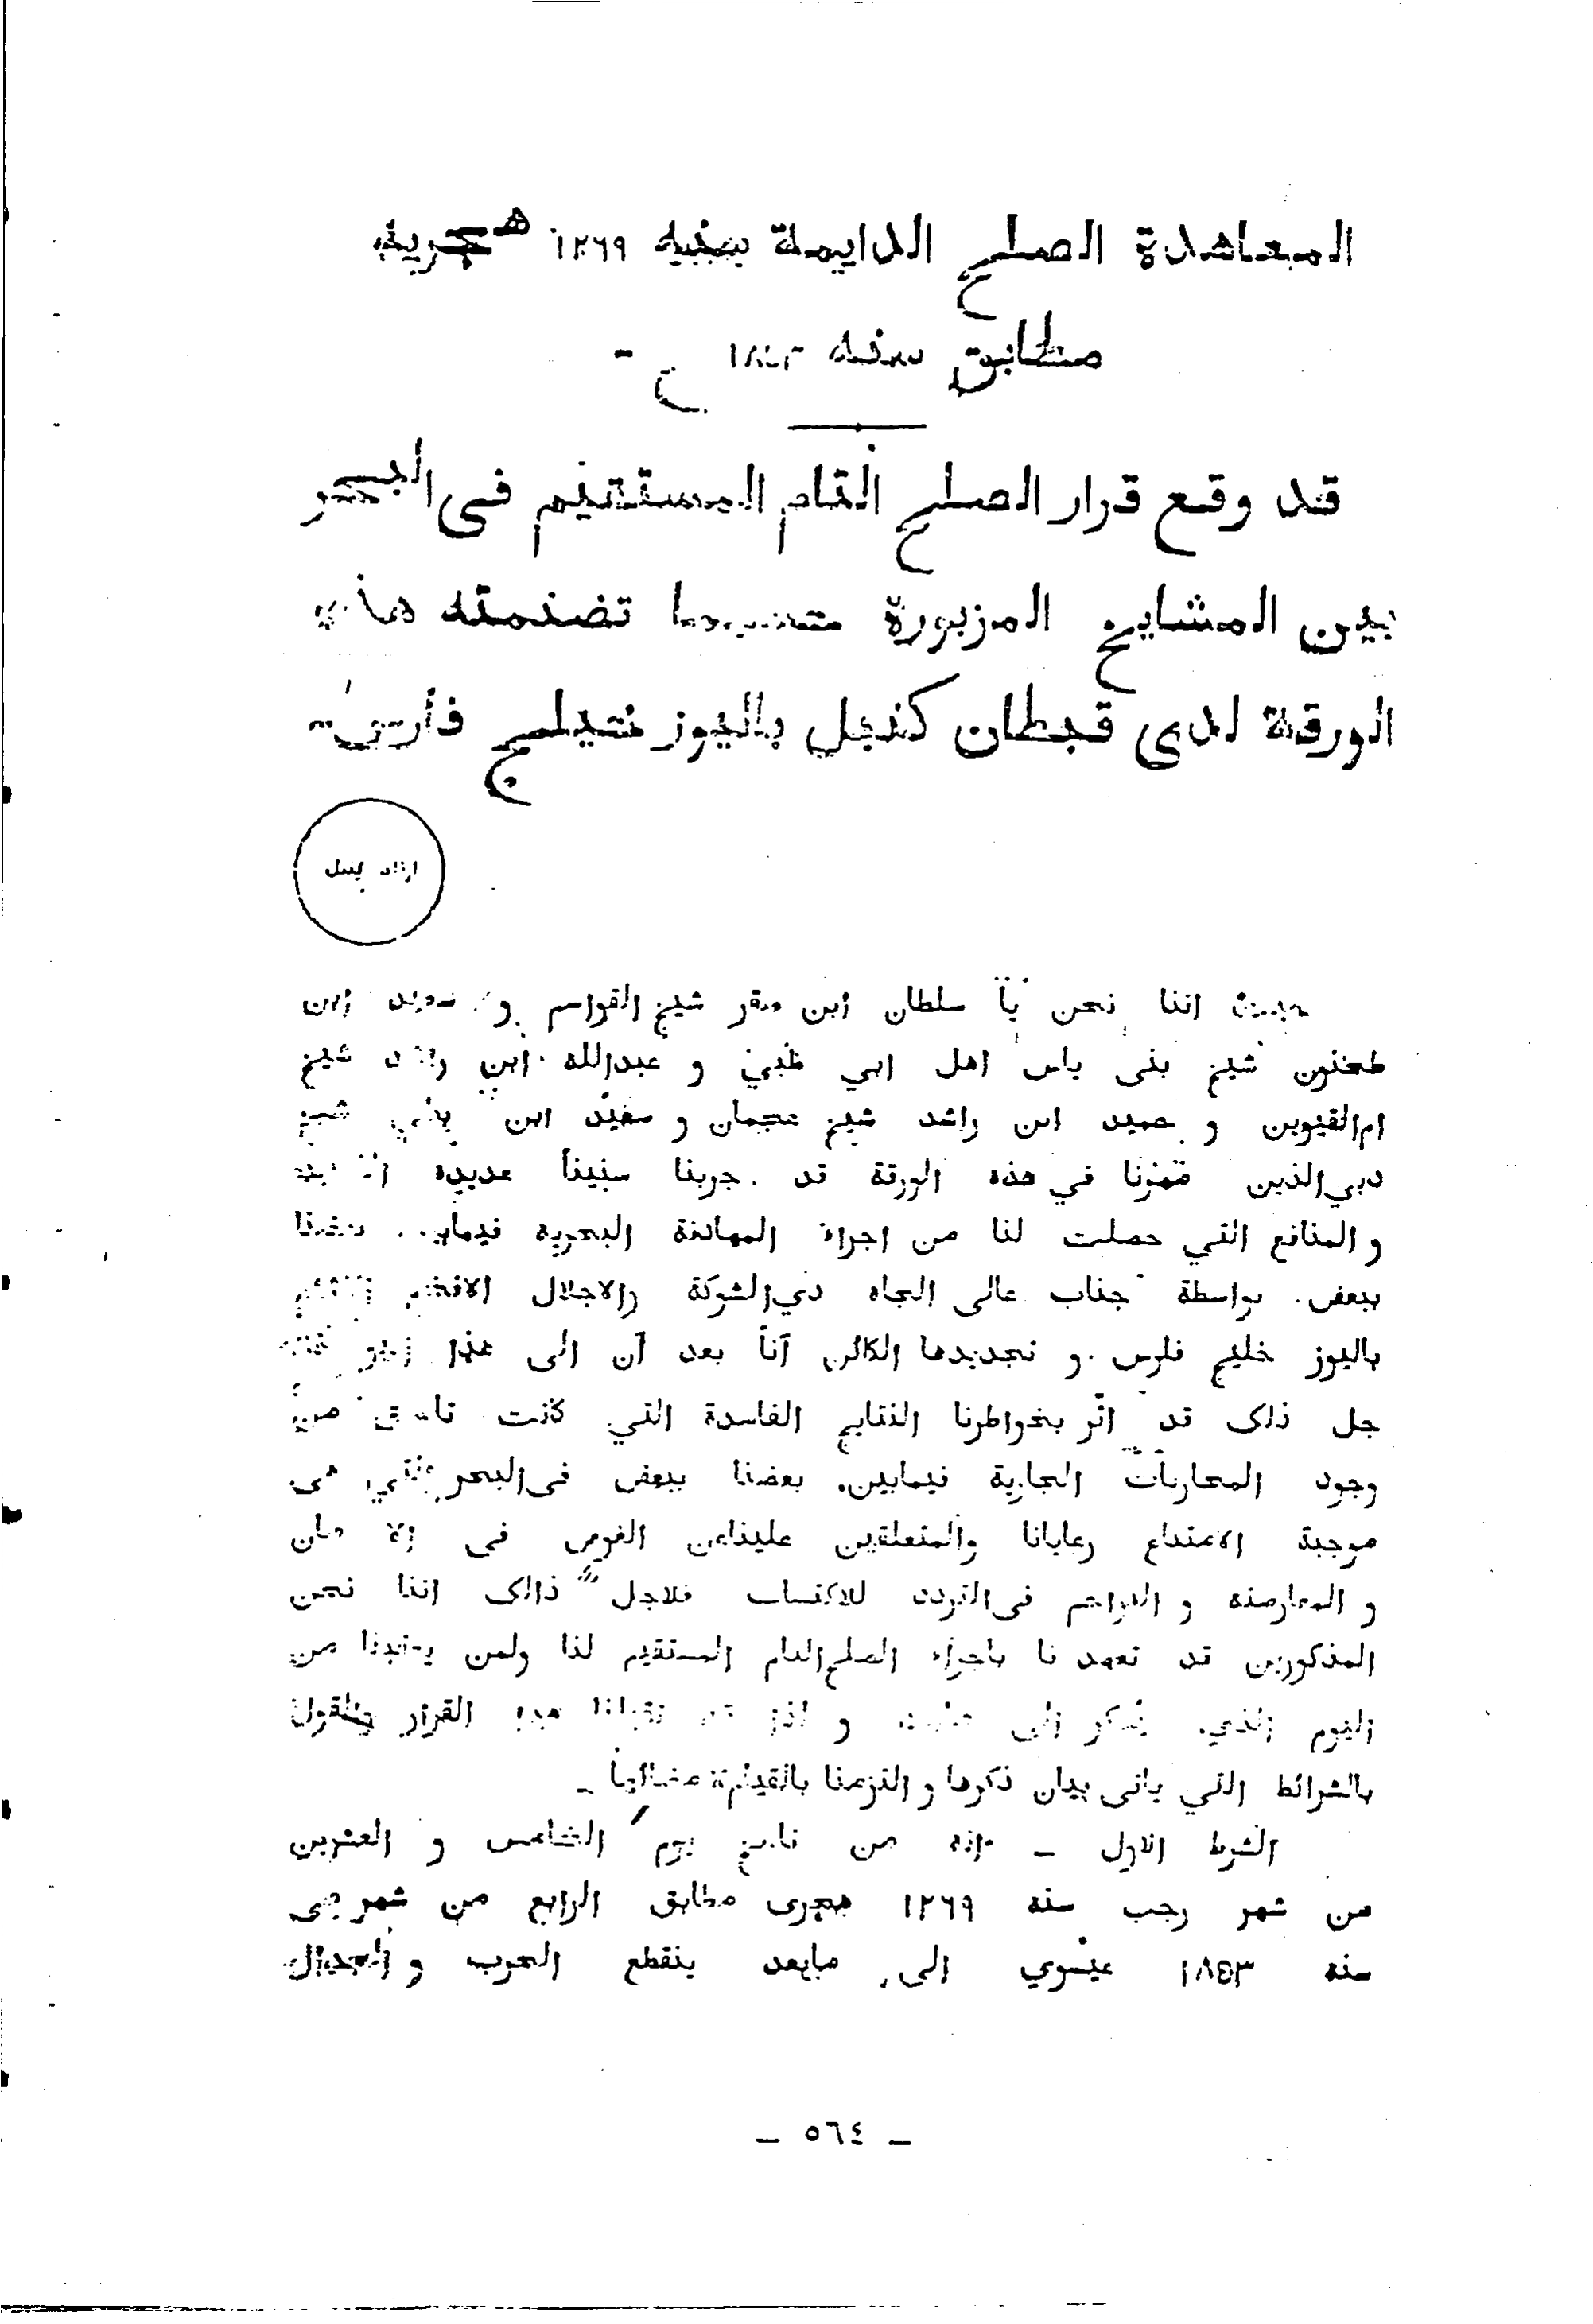 المعاهدة الصلح الدايمة بسنه ١٢٦٩ هجريه
مطابق سنه ١٨٥٣ ع -
قد وقع قرار الصلح التام المستقيم فى البحر
بين المشايخ المزبورة تضنمته
الورقة لدى قبطان كنبل باليوز فارس
كنبل
حيث اننا نحن سلطان ابن صقر شيخ القواسم و سعيد ابن
طحنون شيخ بنى ياس اهل ابي ظبي و عبدالله ابن راشد شيخ
ام‌القيوين و حميد ابن راشد شيخ عجمان و سعيد ابن شيخ
دبي‌الذين في هذه الورقة قد جربنا سنيناً عديدة
و المنافع التي حصلت لنا من اجراء المهادنة البحرية بعضنا
ببعض بواسطة جناب عالى الجاه ذي‌الشوكة والاجلال الافخم
باليوز خليج فارس و تجديدها آناً بعد آن الى هذا
جل ذلك قد اثر بخواطرنا النتايج الفاسدة التي كانت من
وجود المحاربات الجارية فيمابين بعضنا ببعض فى‌البحر التي هى
موجبة الامتناع رعايانا والمتعلقين علينا من الغوص فى
و المعارضه و فى‌التردد للاكتساب فلاجل ذالك اننا نحن
المذكورين قد تعهد نا باجراء الصلح التام المستقيم لنا ولمن من
اليوم الذي و القرار والقول
بالشرائط التي ياتى بيان ذكرها و التزمنا بالقيام
الشرط الاول – انه من يوم الخامس و العشرين
من شهر رجب سنه ١٢٦٩ هجرى مطابق الرابع من شهر مى
سنه ١٨٥٣ عيسوي الى مابعد ينقطع الحرب و الجدال
– ٥٦٤ –